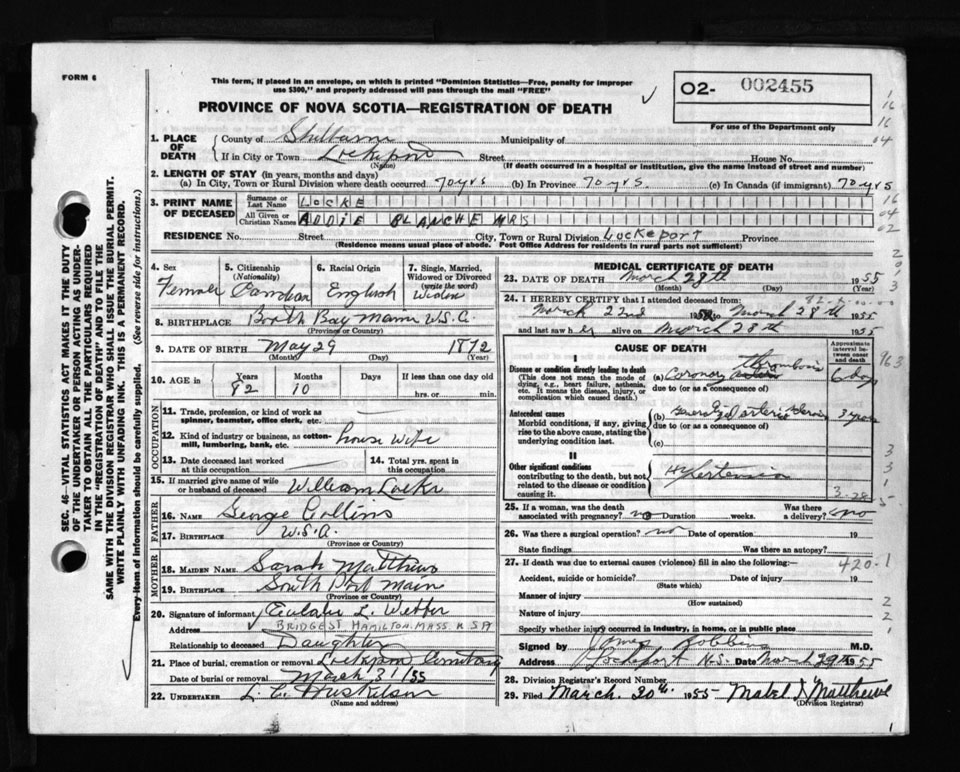 FORM 6
This form, if placed in an envelope, on which is printed "Dominion Statistics—Free, penalty for improper
use $300," and properly addressed will pass through the mail "FREE"
PROVINCE OF NOVA SCOTIA—REGISTRATION OF DEATH
O2- 002455
For use of the Department only
1. PLACE OF DEATH
County of Shelburne Municipality of
If in City or Town Lockeport Street House No.
(Name) (If death occurred in a hospital or institution, give the name instead of street and number)
2. LENGTH OF STAY (in years, months and days)
(a) In City, Town or Rural Division where death occurred 70 yrs (b) In Province 70 yrs. (c) In Canada (if immigrant) 70 yrs
3. PRINT NAME OF DECEASED
Surname or Last Name LOCKE
All Given or Christian Names ADDIE BLANCHE MRS
RESIDENCE No. Street City, Town or Rural Division Lockeport Province
(Residence means usual place of abode. Post Office Address for residents in rural parts not sufficient)
SEC. 46—VITAL STATISTICS ACT MAKES IT THE DUTY
OF THE UNDERTAKER OR PERSON ACTING AS UNDER-
TAKER TO OBTAIN ALL THE PARTICULARS REQUIRED
IN THE "REGISTRATION OF DEATH" AND TO FILE THE
SAME WITH THE DIVISION REGISTRAR WHO SHALL ISSUE THE BURIAL PERMIT.
WRITE PLAINLY WITH UNFADING INK. THIS IS A PERMANENT RECORD.
Every item of information should be carefully supplied. (See reverse side for instructions.)
4. Sex Female
5. Citizenship (Nationality) Canadian
6. Racial Origin English
7. Single, Married, Widowed or Divorced (write the word) Widow
8. BIRTHPLACE Booth Bay U.S.A.
(Province or Country)
9. DATE OF BIRTH May 29 1872
(Month) (Day) (Year)
10. AGE in Years Months Days If less than one day old
82 10 hrs. or min.
OCCUPATION
11. Trade, profession, or kind of work as
spinner, teamster, office clerk, etc.
12. Kind of industry or business, as cotton-
mill, lumbering, bank, etc. house wife
13. Date deceased last worked at this occupation
14. Total yrs. spent in this occupation
15. If married give name of wife
or husband of deceased William Locke
FATHER
16. NAME George Collins
17. BIRTHPLACE U.S.A.
(Province or Country)
MOTHER
18. MAIDEN NAME. Sarah Matthews
19. BIRTHPLACE South Port
(Province or Country)
20. Signature of informant Eulalie L. Webber
Address BRIDGE ST HAMILTON. MASS U S A
Relationship to deceased Daughter
21. Place of burial, cremation or removal Lockeport Cemetery
Date of burial or removal March 31/55
22. UNDERTAKER
(Name and address)
MEDICAL CERTIFICATE OF DEATH
23. DATE OF DEATH March 28th 1955
(Month) (Day) (Year)
24. I HEREBY CERTIFY that I attended deceased from:
March 22nd 1955 to March 28th 1955
and last saw her alive on March 28th 1955
CAUSE OF DEATH
Approximate interval between onset and death
I
Disease or condition directly leading to death
(This does not mean the mode of
dying, e.g., heart failure, asthenia,
etc. It means the disease, injury, or
complication which caused death.)
(a) Coronary thrombosis 6 days
due to (or as a consequence of)
Antecedent causes
Morbid conditions, if any, giving
rise to the above cause, stating the
underlying condition last.
(b) Generalized arteriosclerosis 3 years
due to (or as a consequence of)
(c)
II
Other significant conditions
contributing to the death, but not
related to the disease or condition
causing it.
Hypertension
25. If a woman, was the death
associated with pregnancy? no Duration weeks. Was there a delivery? no
26. Was there a surgical operation? no Date of operation 19
State findings Was there an autopsy?
27. If death was due to external causes (violence) fill in also the following: 420-1
Accident, suicide or homicide? Date of injury 19
(State which)
Manner of injury
(How sustained)
Nature of injury
Specify whether injury occurred in industry, in home, or in public place
Signed by James Robbins M.D.
Address Lockeport N.S. Date March 29th 1955
28. Division Registrar's Record Number
29. Filed March. 30th. 1955 Mabel Matthews
(Division Registrar)